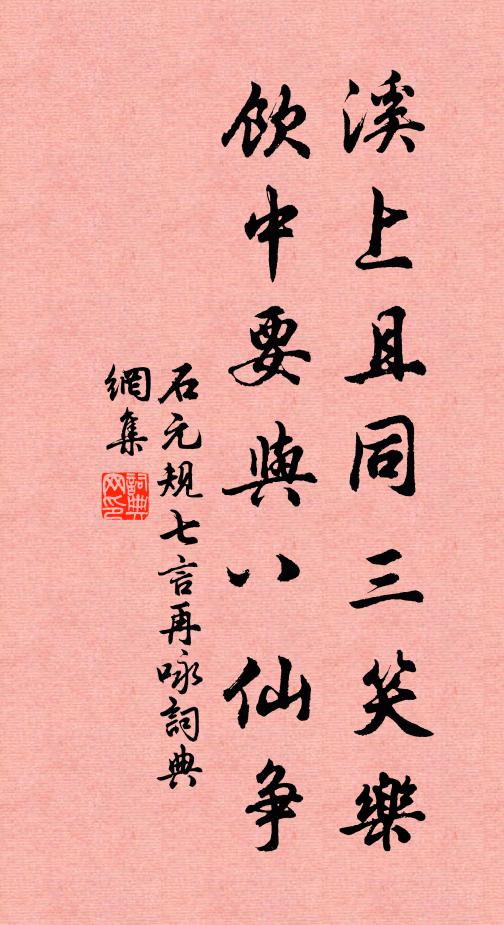 溪上且同三笑樂
飲中要與八仙争
石元規七言再咏詞典
網集
詞典
网印